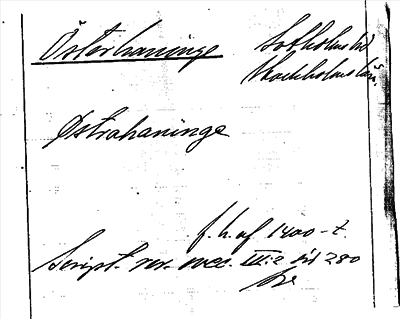 Österhaninge Sotholms hd
Stockholms län.
Østrahaninge
f. h. af 1400-t.
Script. rer. svec. III:2 sid 280